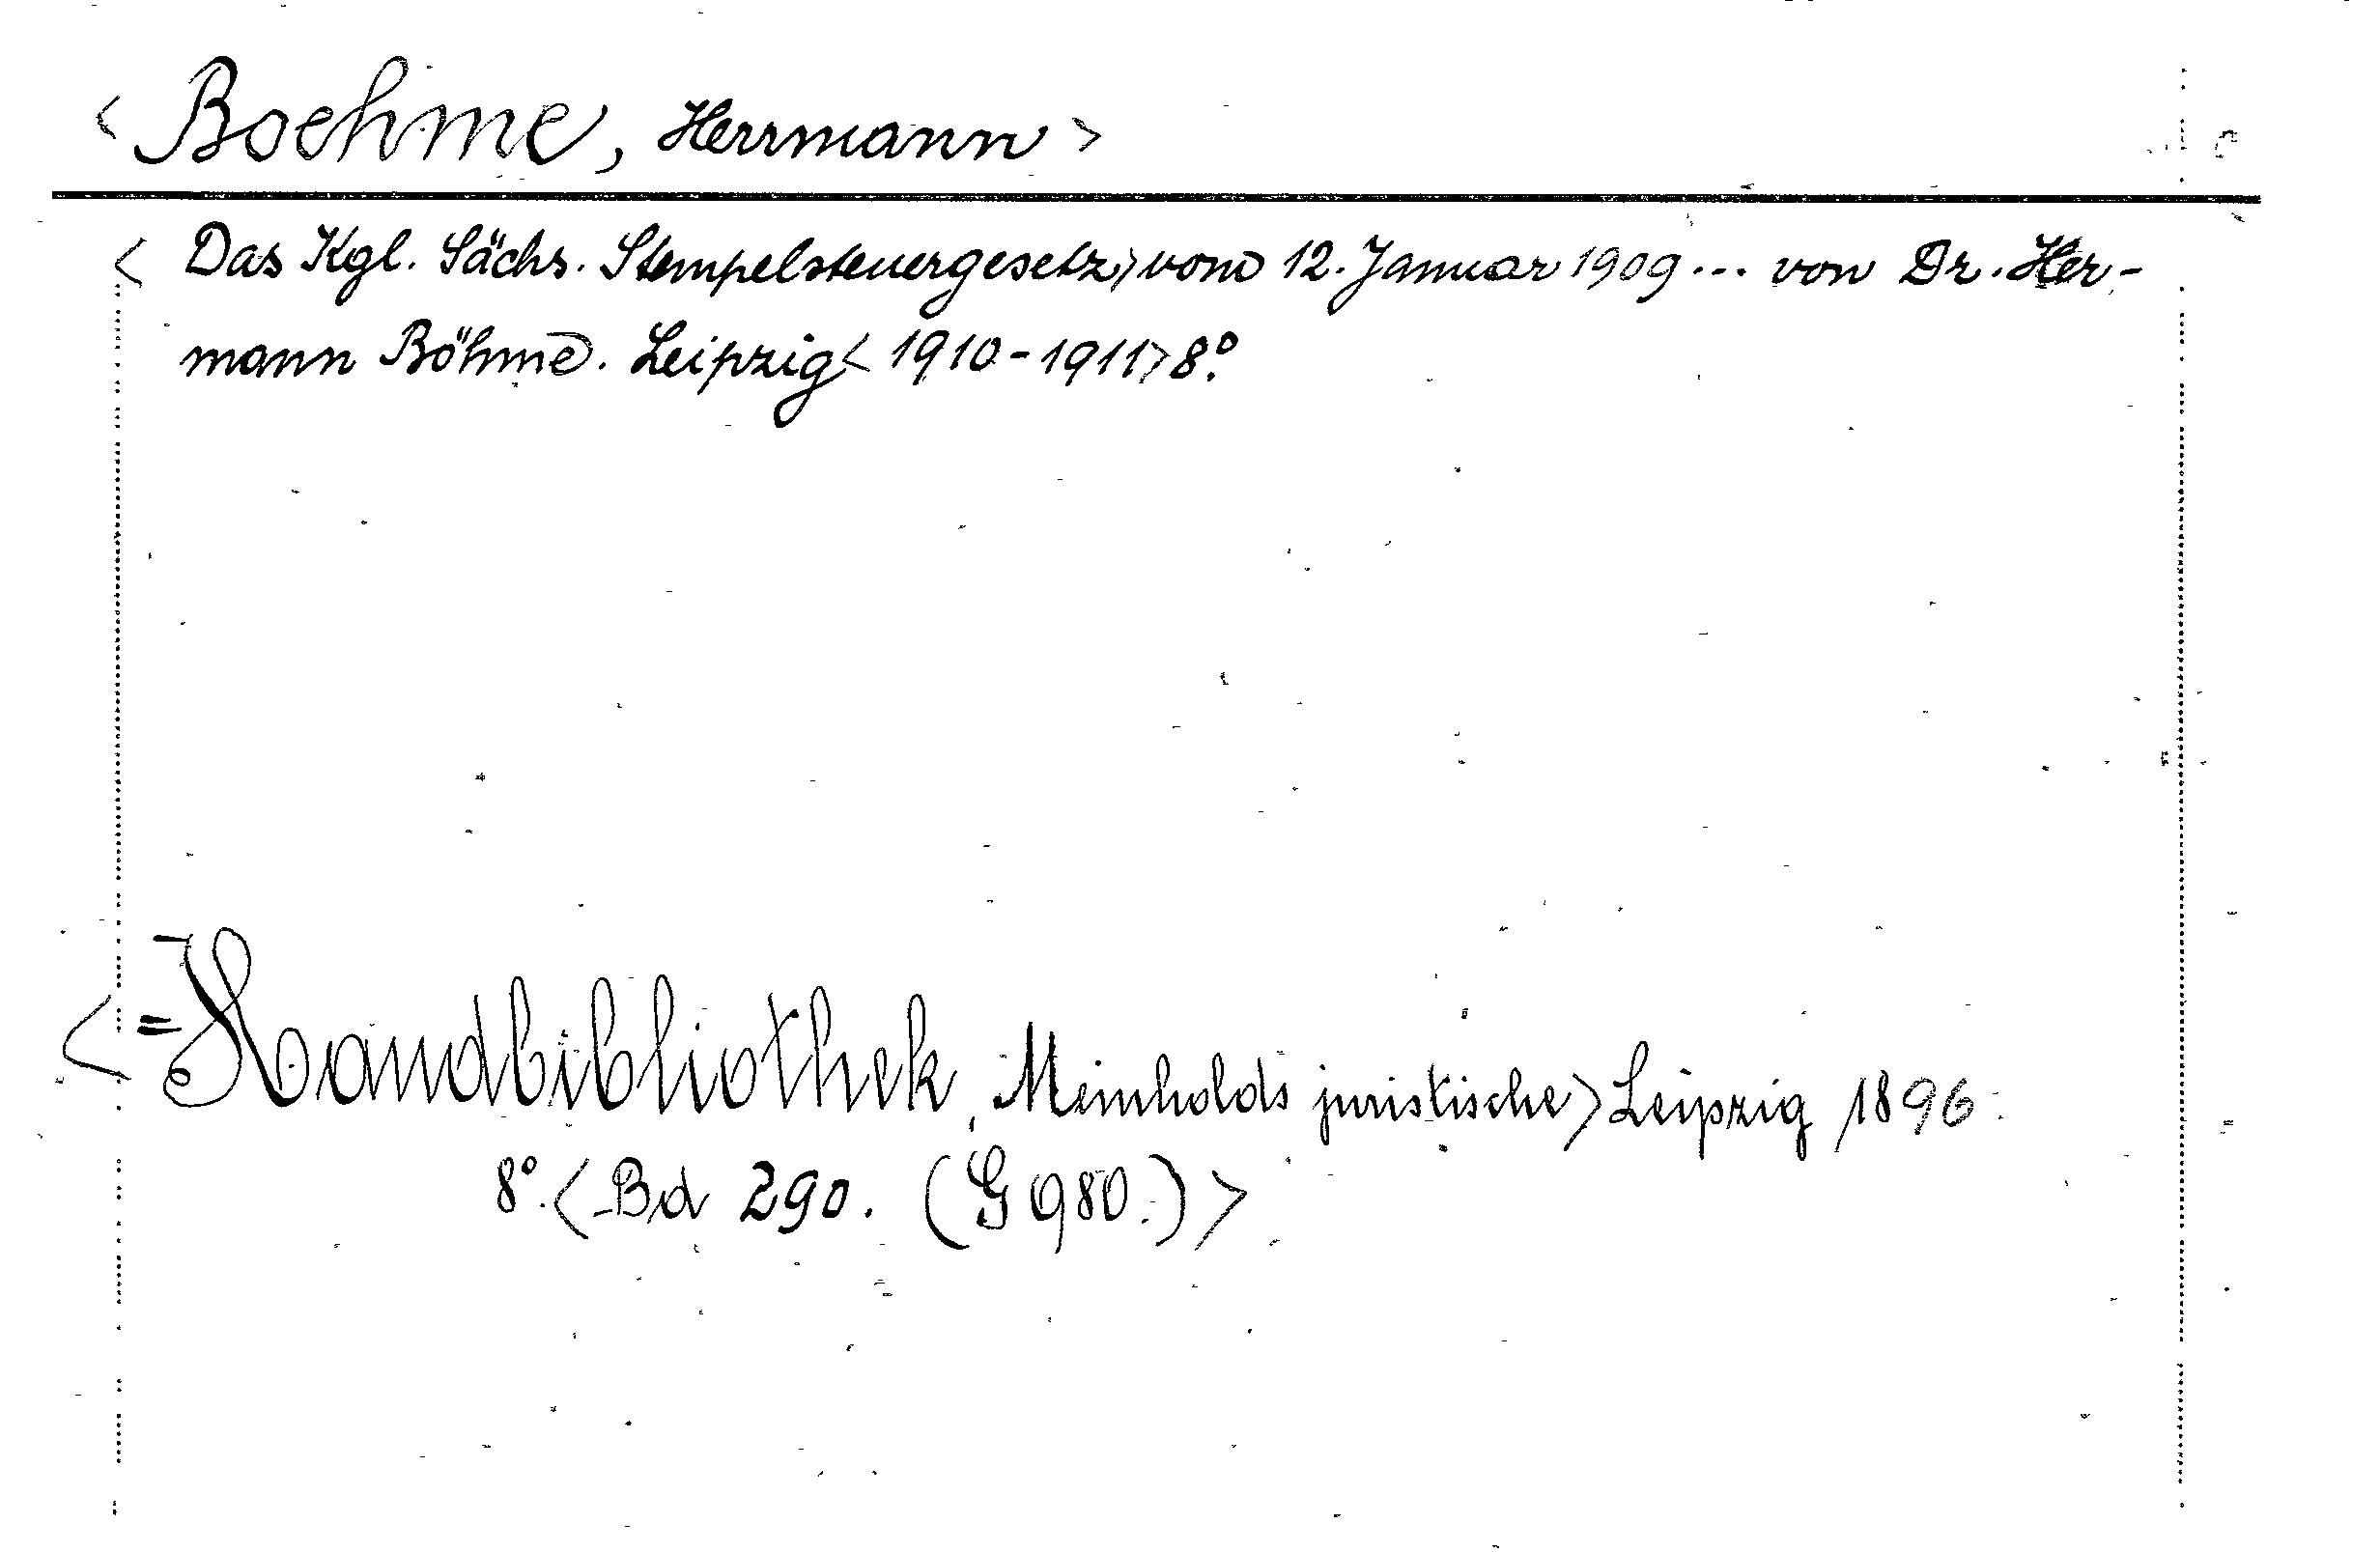 < Boehme, Herrmann >
< Das Kgl. Sächs. Stempelsteuergesetz> vom 12. Januar 1909 ... von Dr. Her-
mann Böhme. Leipzig < 1910-1911> 8°.
< = Handbibliothek, Meinholds juristische> Leipzig 1896.
8°. < Bd 290. (G 980.) >